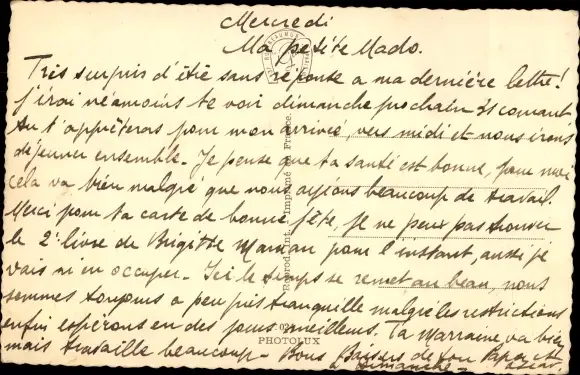 Mercredi
Ma petite Mado.
Très surpris d'étie sans réponse a ma dernière lettre!
j'irai néamoins te voir dimanche prochain 25 courant
tu t'apprêteras pour mon arrivée, vers midi et nous irons
déjeuner ensemble. Je pense que ta santé est bonne, pour moi
cela va bien malgré que nous ayions beaucoup de travail.
Merci pour ta carte de bonne fête, je ne peux pas trouver
le 2e livre de Brigitte pour l'instant, aussi je
vais m'en occuper. Ici le temps se remet au beau, nous
sommes toujours a peu près tranquille malgré les restrictions
enfin espérons en des jours meilleurs. Ta Marraine va bien
mais travaille beaucoup. Bons Baisers de ton Papa et
a Dimanche
Reprod. Int. Imprimé en France.
PHOTOLUX